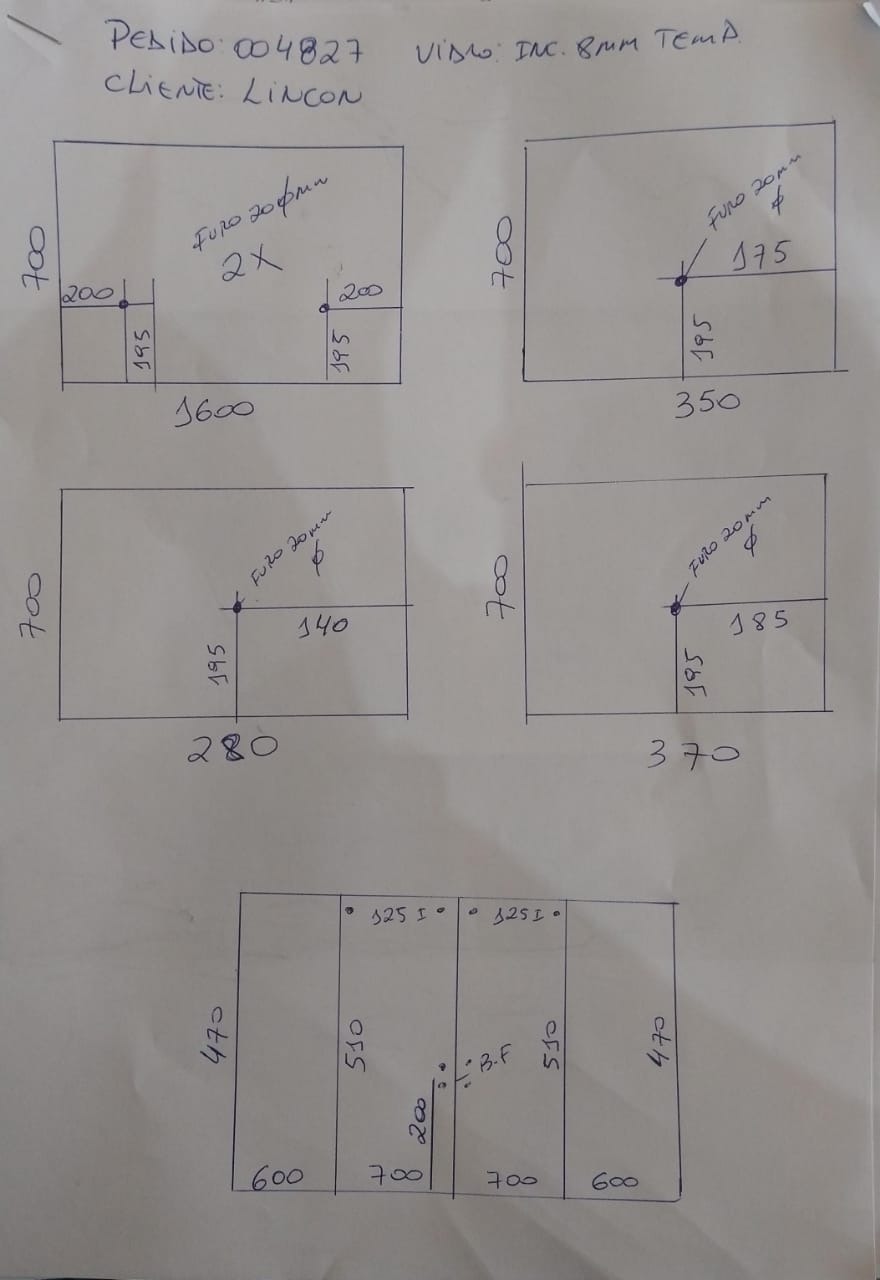 PEDIDO: 004827 VIDRO: INC. 8mm TEMP.
CLIENTE: LINCON
700
FURO 20 ϕ mm
2X
200
200
195
195
1600
700
FURO 20mm
ϕ
175
195
350
700
FURO 20mm
ϕ
140
195
280
700
FURO 20mm
ϕ
185
195
370
125 I
125 I
470
510
510
470
B.F
200
600
700
700
600